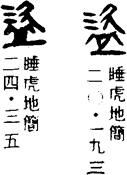 睡虎地簡
二〇・一九三
睡虎地簡
二四・二五